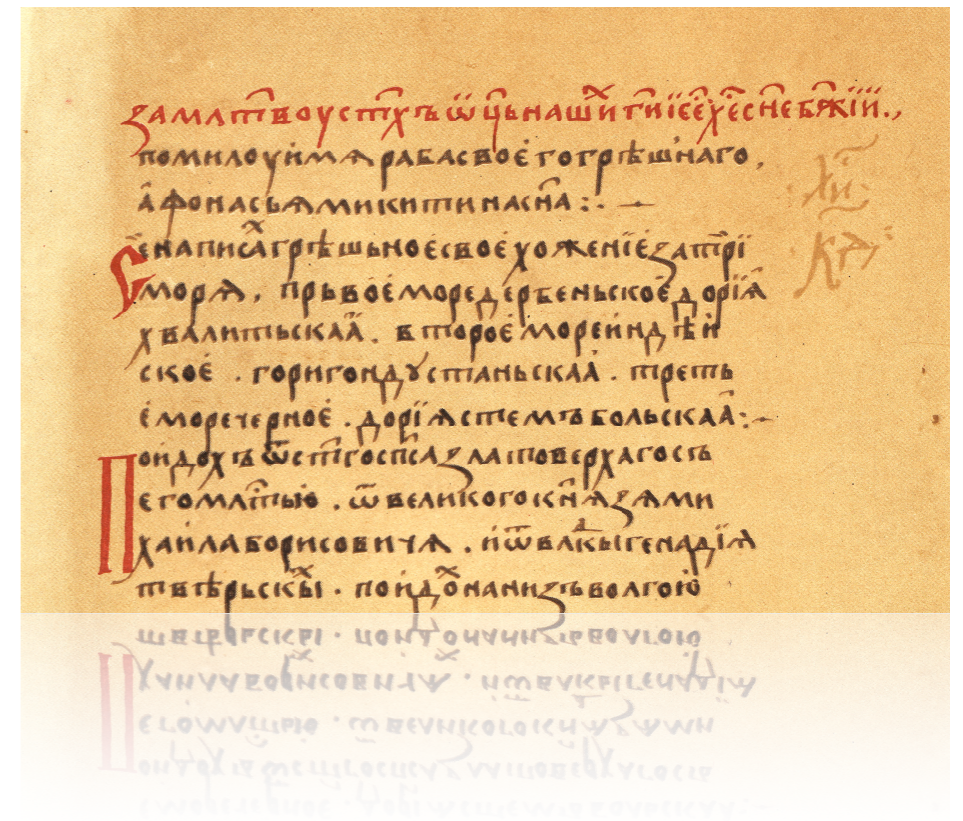 замлтвоустхъѿц҃ьнашиⷯгⷭ҇иїс҃ех҃есн҃ебж҃їи.,
помилоуймѧрабасвоегогрѣшнаго,
аѳонасьѧмикитинасн҃а:.
Сенаписаⷯгрѣшьноесвоехоженїезатрⷯи
морѧ, прьвоеморедербеньскоедорїѧ
хвалитьскаа. второемореиндѣй
ское. горигондустаньскаа. третье
еморечерное. дорїѧстемъбольскаа:
Поидохъѿст҃госпс҃азлатоверхагосъ
егомлⷭ҇тью. ѿвеликогокн҃ѧзѧми
хаилаборисовичѧ. иѿвлⷣкыгенадїѧ
твѣрьскыⷯ. поидоⷯнанизъволгою